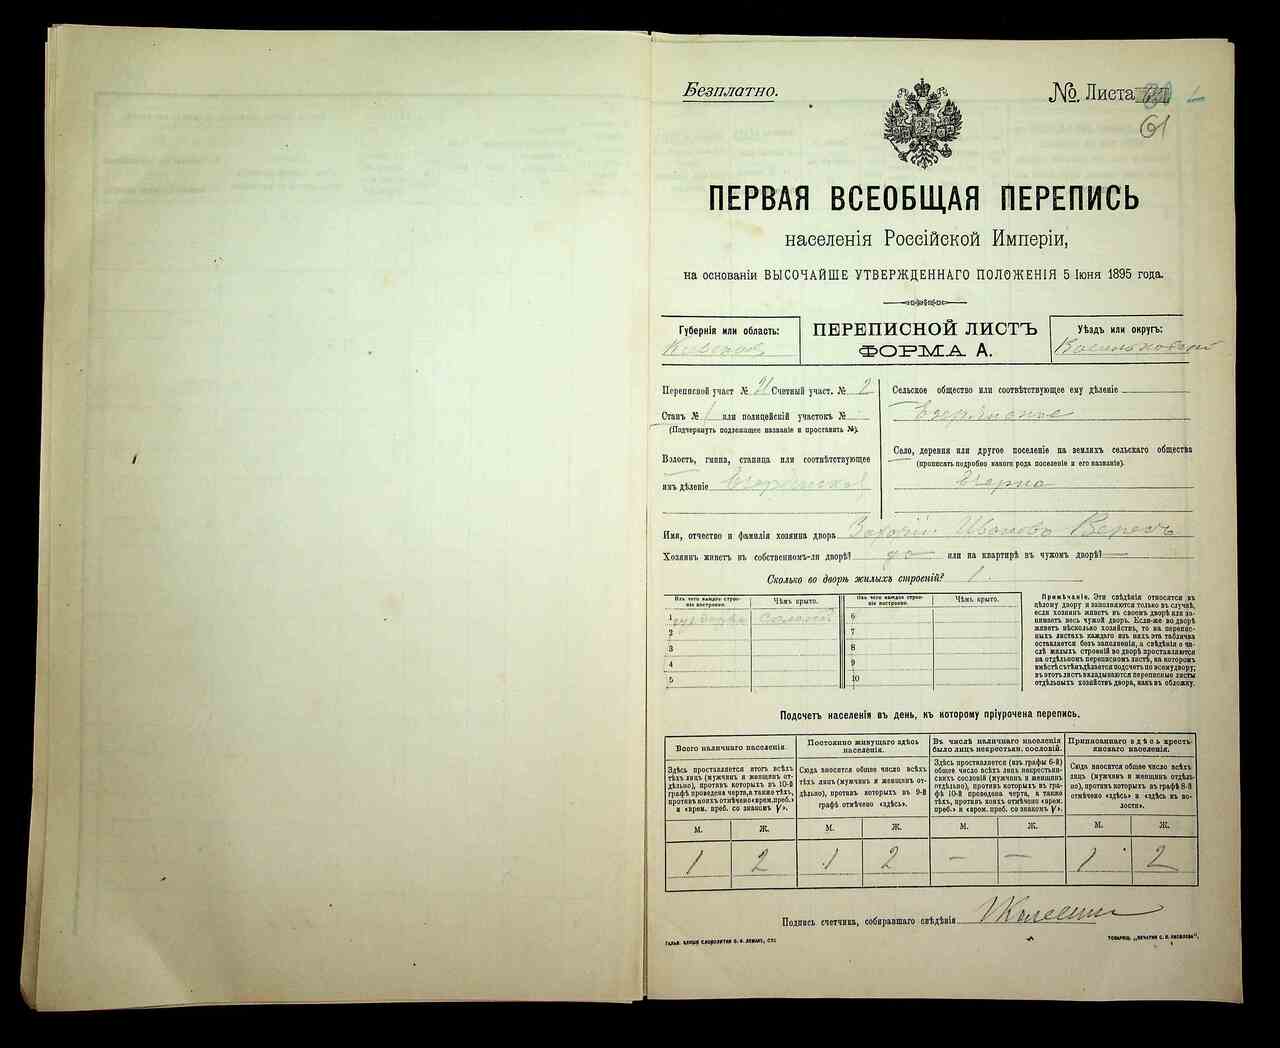 Безплатно.
№ Листа
61
ПЕРВАЯ ВСЕОБЩАЯ ПЕРЕПИСЬ
населенія Россійской Имперіи,
на основаніи ВЫСОЧАЙШЕ УТВЕРЖДЕННАГО ПОЛОЖЕНІЯ 5 Іюня 1895 года.
Губернія или область:
Кіевская
ПЕРЕПИСНОЙ ЛИСТЪ
ФОРМА А.
Уѣздъ или округъ:
Васильковскій
Переписной участ № 21 Счетный участ. № 2
Станъ № 1 или полицейскій участокъ №
(Подчеркнуть подлежащее названіе и проставить №).
Волость, гмина, станица или соотвѣтствующее
имъ дѣленіе
Сельское общество или соотвѣтствующее ему дѣленіе
Село, деревня или другое поселеніе на земляхъ сельскаго общества
(прописать подробно какого рода поселеніе и его названіе).
Имя, отчество и фамилія хозяина двора Иванов
Хозяинъ живетъ въ собственномъ-ли дворѣ? да или на квартирѣ въ чужомъ дворѣ? —
Сколько во дворѣ жилыхъ строеній? 1.
Изъ чего каждое строеніе построено.
Чѣмъ крыто.
Изъ чего каждое строеніе построено.
Чѣмъ крыто.
1 соломой 6
2 7
3 8
4 9
5 10
Примѣчаніе. Эти свѣдѣнія относятся къ
цѣлому двору и заполняются только въ случаѣ,
если хозяинъ живетъ въ своемъ дворѣ или занимаетъ
весь чужой дворъ. Если-же во дворѣ
живетъ нѣсколько хозяйствъ, то на переписныхъ
листахъ каждаго изъ нихъ эта табличка
оставляется безъ заполненія, а свѣдѣнія о числѣ
жилыхъ строеній во дворѣ проставляются
на отдѣльномъ переписномъ листѣ, на которомъ
вмѣстѣ съ тѣмъ дѣлается подсчетъ по всему двору;
въ этотъ листъ вкладываются переписные листы
отдѣльныхъ хозяйствъ двора, какъ въ обложку.
Подсчетъ населенія въ день, къ которому пріурочена перепись.
Всего наличнаго населенія.
Постоянно живущаго здѣсь населенія.
Въ числѣ наличнаго населенія было лицъ некрестьян. сословій.
Приписаннаго здѣсь крестьянскаго населенія.
Здѣсь проставляется итогъ всѣхъ
тѣхъ лицъ (мужчинъ и женщинъ отдѣльно),
противъ которыхъ въ 10-й
графѣ проведена черта, а также тѣхъ,
противъ коихъ отмѣчено «врем. преб.»
и «врем. преб. со знакомъ V».
Сюда вносится общее число всѣхъ
тѣхъ лицъ (мужчинъ и женщинъ отдѣльно),
противъ которыхъ въ 9-й
графѣ отмѣчено «здѣсь».
Здѣсь проставляется (изъ графы 6-й)
общее число всѣхъ лицъ некрестьянскихъ
сословій (мужчинъ и женщинъ
отдѣльно), противъ коихъ въ графѣ
10-й проведена черта, а также
тѣхъ, противъ коихъ отмѣчено «врем.
преб.» и «врем. преб. со знакомъ V».
Сюда вносится общее число всѣхъ
лицъ (мужчинъ и женщинъ отдѣльно),
противъ которыхъ въ графѣ 8-й
отмѣчено «здѣсь» и «здѣсь въ волости».
М. Ж. М. Ж. М. Ж. М. Ж.
1 2 1 2 — — 1 2
Подпись счетчика, собиравшаго свѣдѣнія